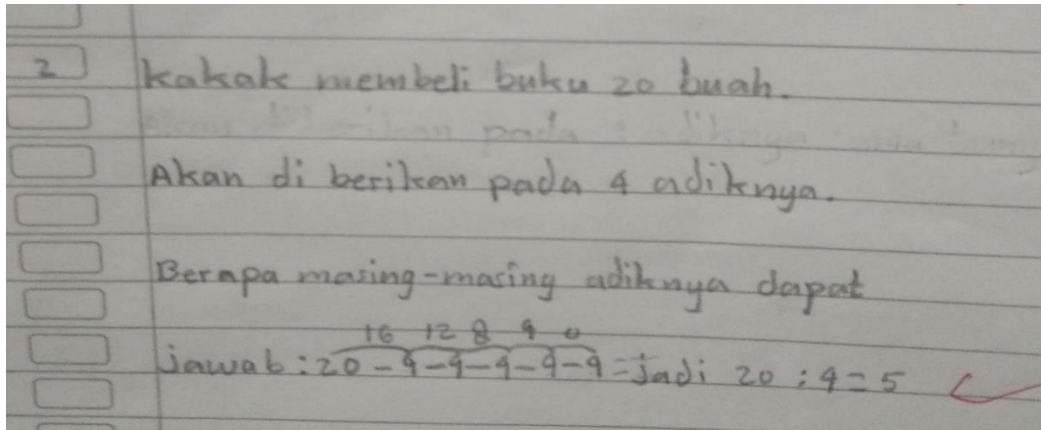 2 Kakak membeli buku 20 buah.
Akan di berikan pada 4 adiknya.
Berapa masing-masing adiknya dapat
16 12 8 4 0
jawab : 20 - 4 - 4 - 4 - 4 - 4 = jadi 20 : 4 = 5